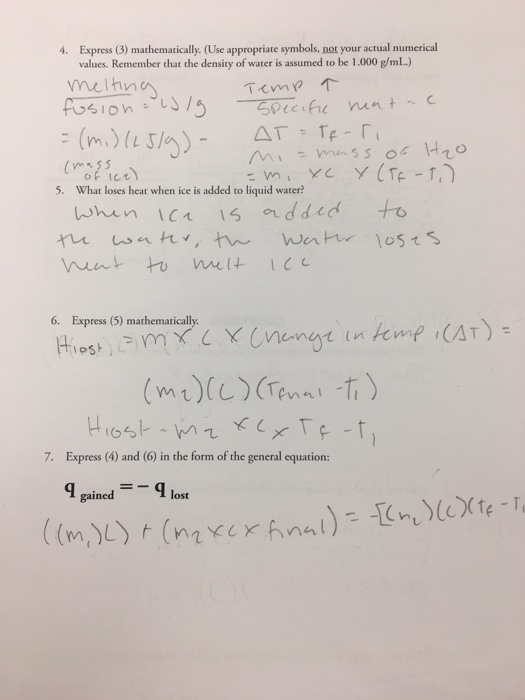 4. Express (3) mathematically. (Use appropriate symbols, not your actual numerical
values. Remember that the density of water is assumed to be 1.000 g/mL.)
melting Temp ↑
fusion = LJ/g Specific heat = c
= (m₁)(LJ/g) - ΔT = Tf - T₁
(mass of ice) m₁ = mass of H₂O
= m₁ x c x (Tf - T₁)
5. What loses heat when ice is added to liquid water?
When ice is added to
the water, the water loses
heat to melt ice
6. Express (5) mathematically.
Hlost = m x c x Change in temp, (ΔT) =
(m₂)(c)(Tfinal - T₁)
Hlost = m₂ x c x Tf - T₁
7. Express (4) and (6) in the form of the general equation:
q gained = - q lost
((m₁)L) + (m₂xcxfinal) = -[(m₂)(c)(Tf - T₁